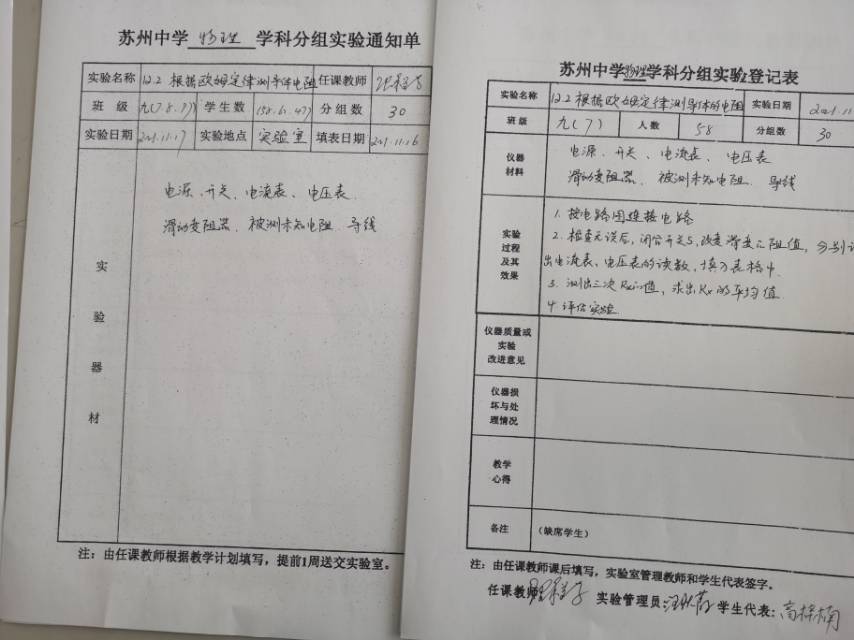 苏州中学 物理 学科分组实验通知单
实验名称 12.2 根据欧姆定律测导体电阻 任课教师
班 级 九(7.8.9) 学生数 分组数 30
实验日期 2021.11.17 实验地点 实验室 填表日期 2021.11.16
电源、开关、电流表、电压表
滑动变阻器、被测未知电阻、导线
实
验
器
材
注：由任课教师根据教学计划填写，提前1周送交实验室。
苏州中学物理学科分组实验登记表
实验名称 12.2 根据欧姆定律测导体的电阻 实验日期 2021.11
班 级 九(7) 人 数 58 分组数 30
仪器
材料
电源、开关、电流表、电压表
滑动变阻器、被测未知电阻、导线
实验
过程
及其
效果
1. 按电路图连接电路
2. 检查无误后，闭合开关S，改变滑变阻值，分别
出电流表、电压表的读数，填入表格中.
3. 测出三次Rx的值，求出Rx的平均值.
4. 评估实验.
仪器质量或
实验
改进意见
仪器损
坏与处
理情况
教学
心得
备注 (缺席学生)
注：由任课教师课后填写，实验室管理教师和学生代表签字。
任课教师： 实验管理员： 学生代表：